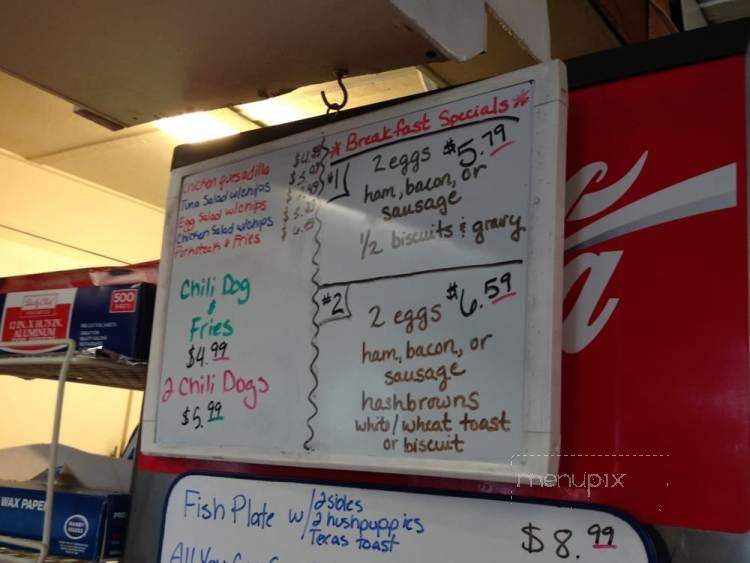 Chicken quesadilla
Tuna Salad w/chips
Egg Salad w/chips
Chicken Salad w/chips
& Fries
Chili Dog
&
Fries
$4.99
2 Chili Dogs
$5.99
* Breakfast Specials *
#1
2 eggs $5.79
ham, bacon, or
sausage
1/2 biscuits & gravy
#2
2 eggs $6.59
ham, bacon, or
sausage
hashbrowns
white/wheat toast
or biscuit
Fish Plate w/ 2 sides
2 hushpuppies
Texas toast
$8.99
All You
500
SHEETS
12 IN. X 10.75 IN.
ALUMINUM
WAX PAPER
menupix